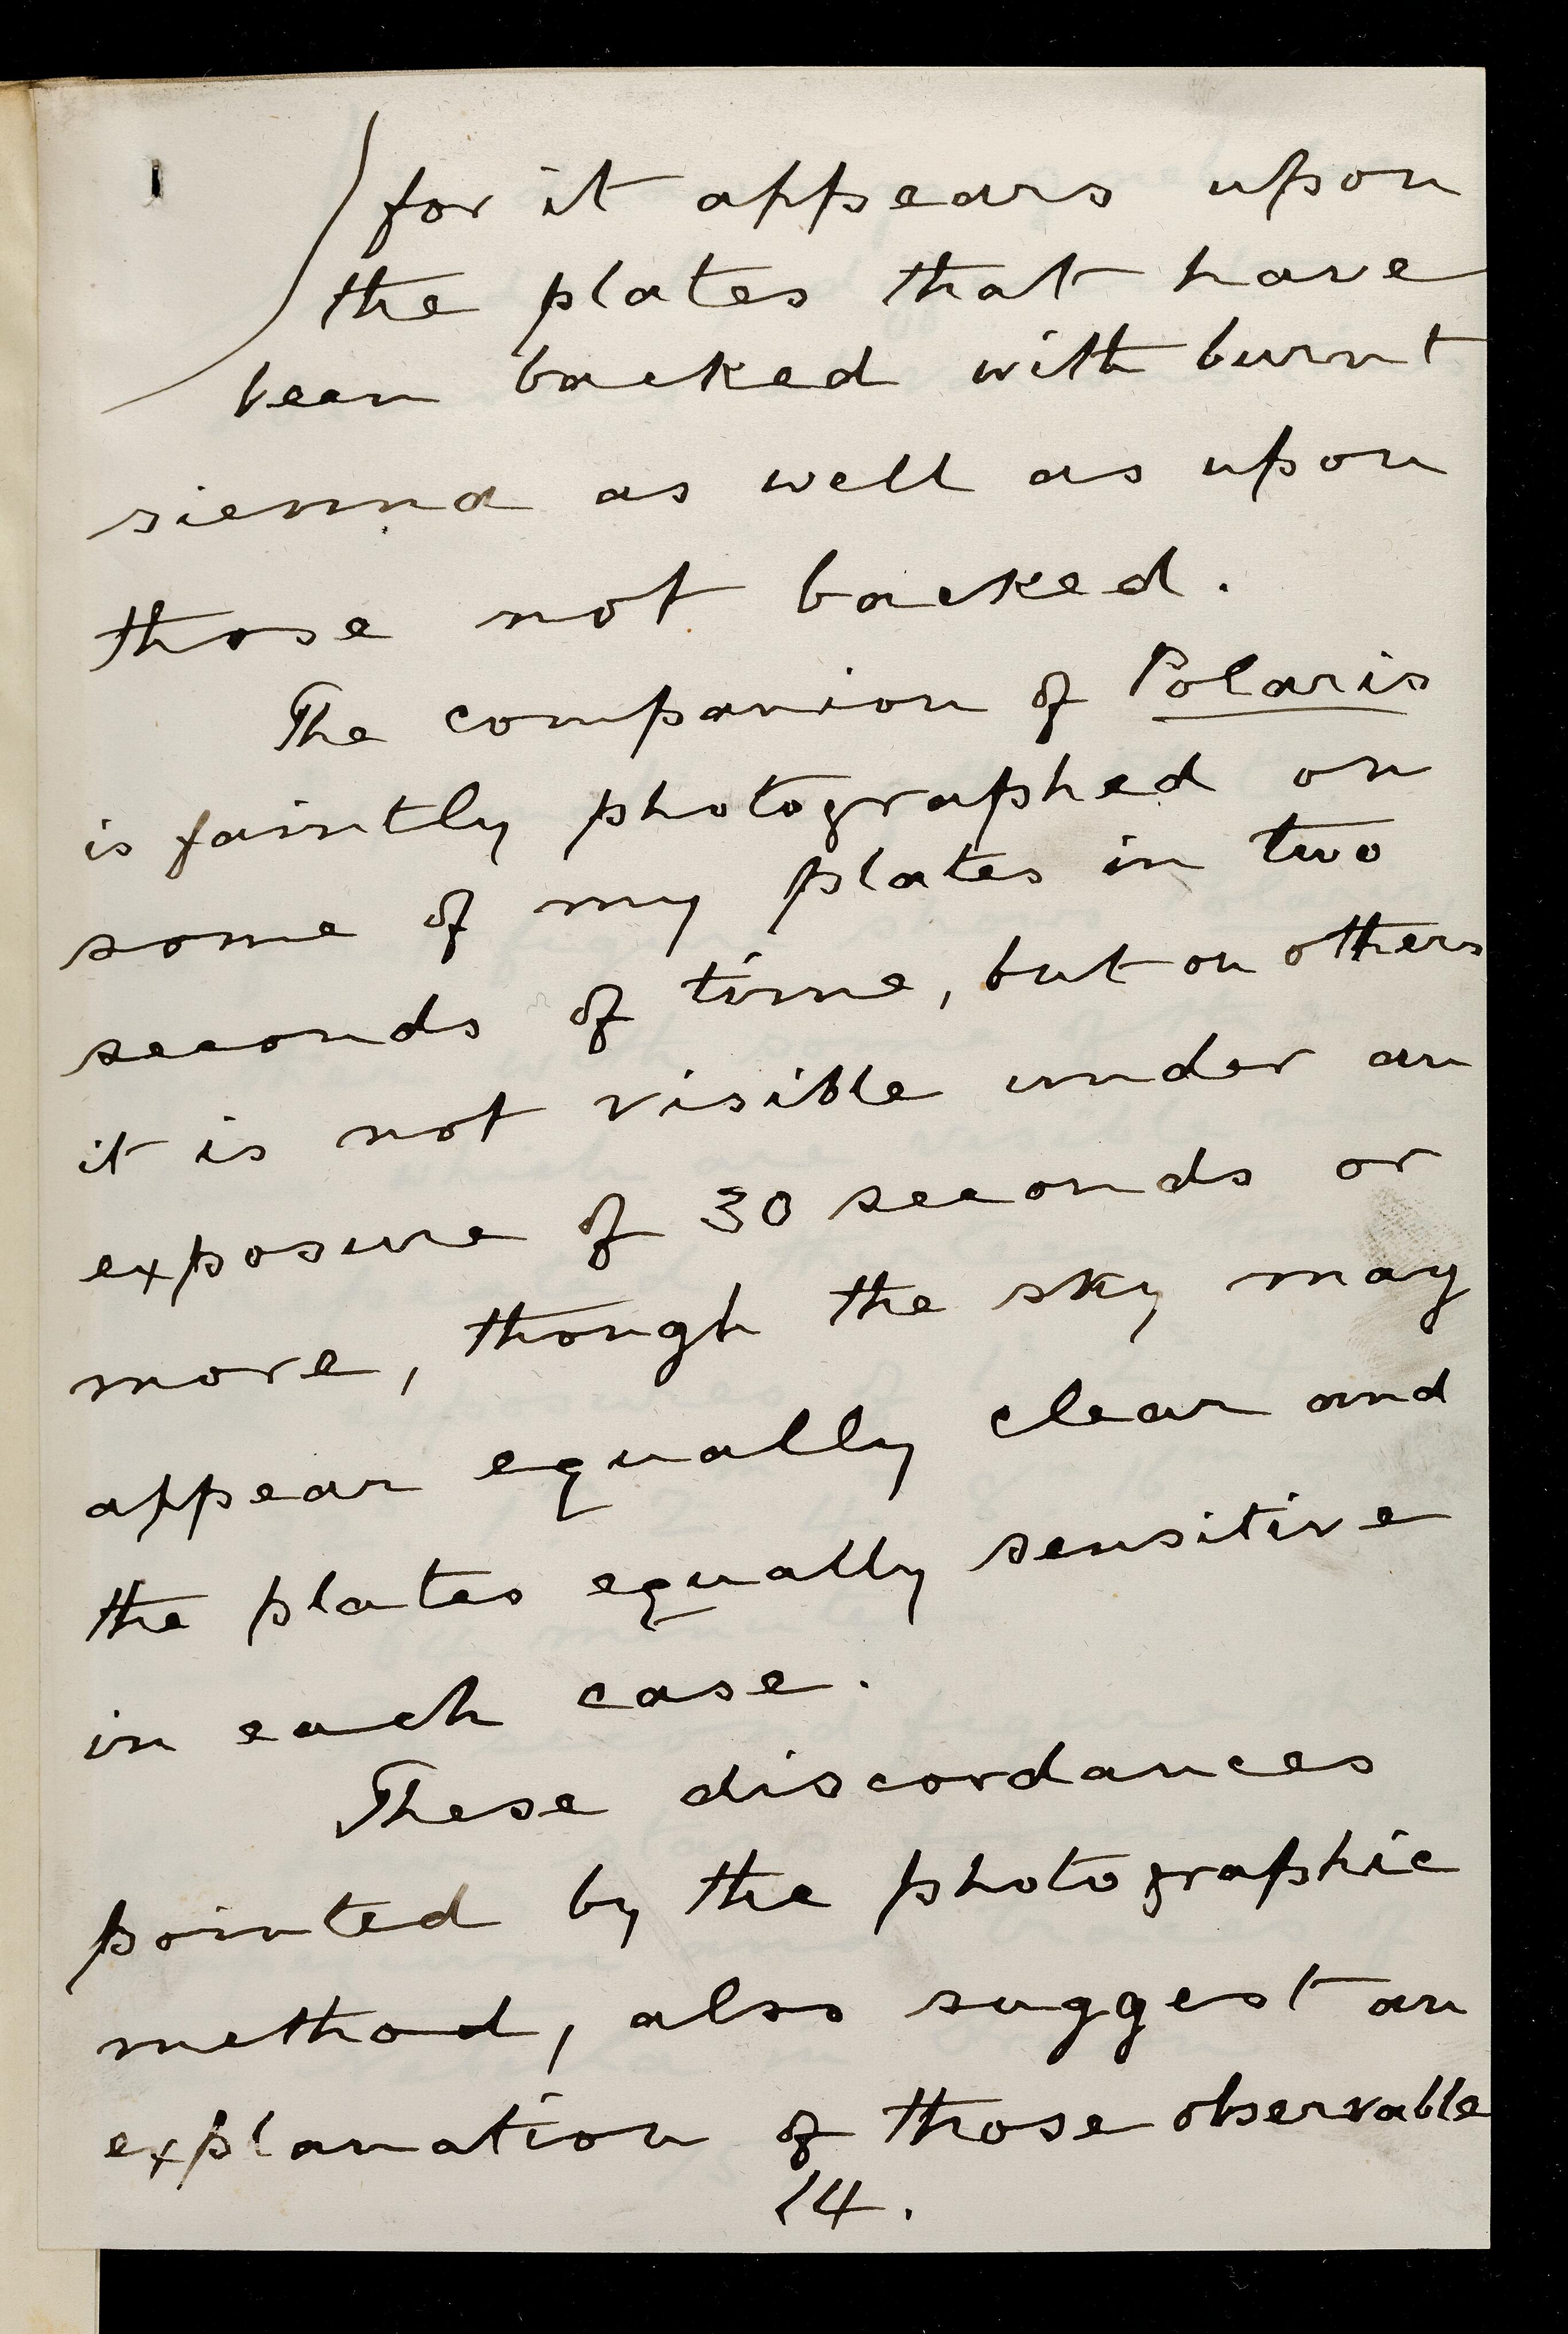 for it appears upon
the plates that have
been backed with burnt
sienna as well as upon
those not backed.
The companion of Polaris
is faintly photographed on
some of my plates in two
seconds of time, but on others
it is not visible under an
exposure of 30 seconds or
more, though the sky may
appear equally clear and
the plates equally sensitive
in each case.
These discordances
pointed by the photographic
method, also suggest an
explanation of those observable
14.